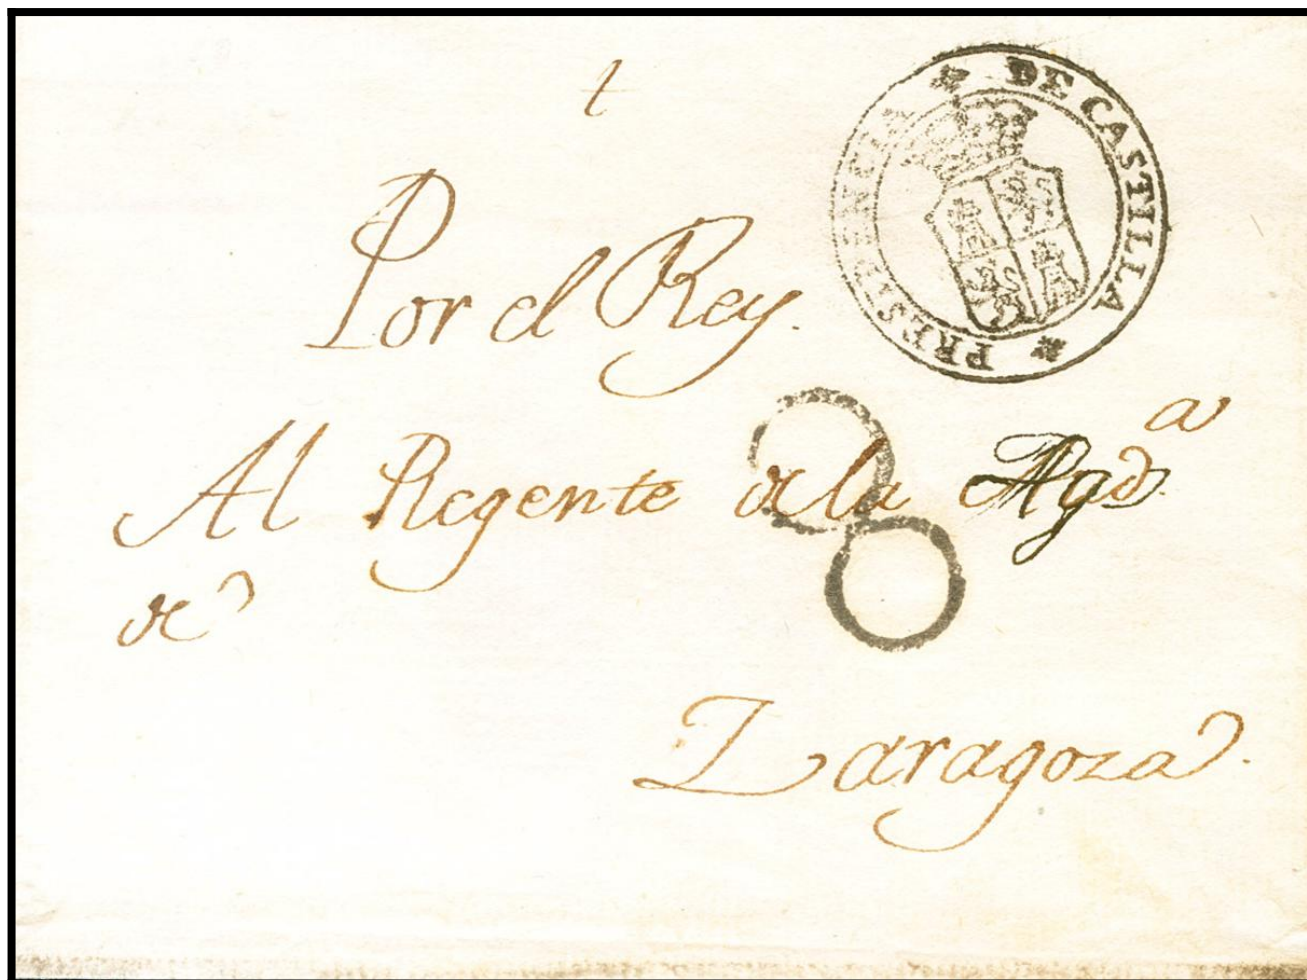 t
PRESIDENCIA * DE CASTILLA *
Por el Rey.
Al Regente de la
de
Zaragoza.